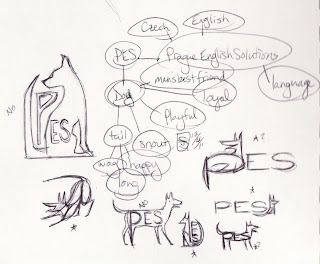 Czech
English
PES
Prague English Solutions
man's best friend
language
Dog
loyal
Playful
tail
snout
wag
happy
long
NO
PES
PES
NO
PES
PES
PES
NO